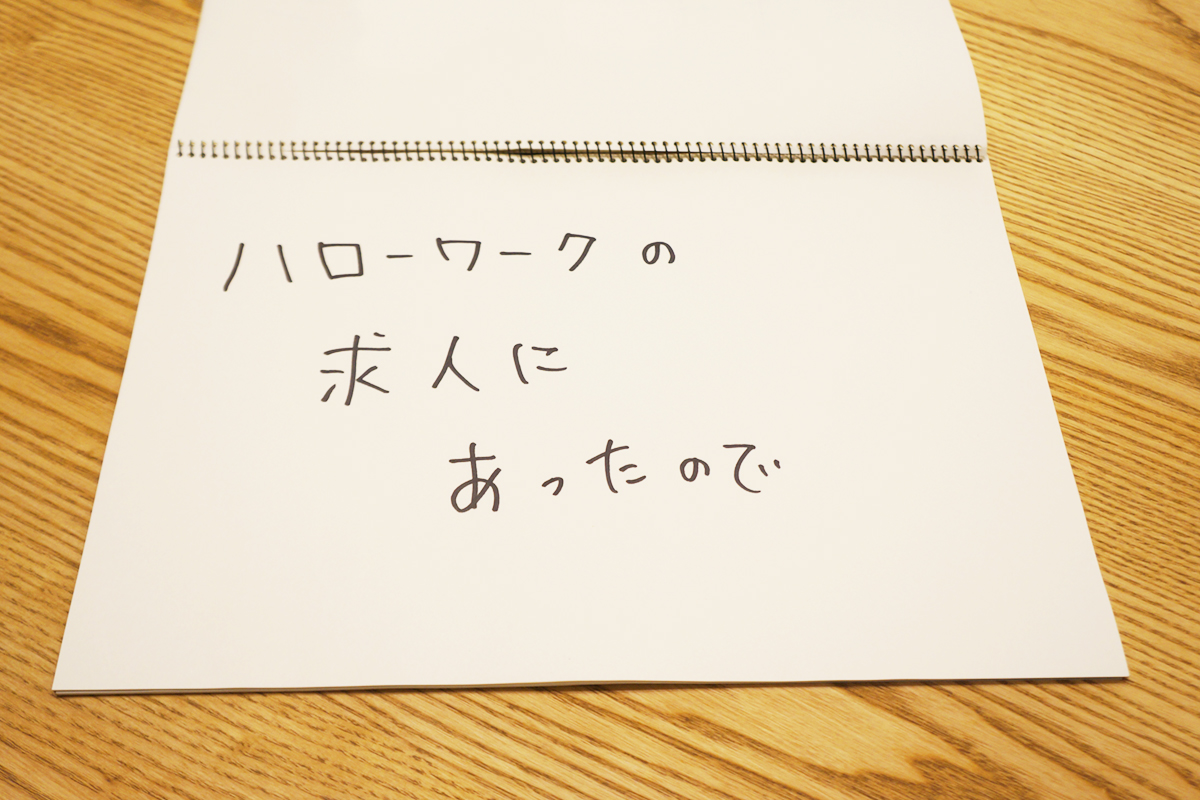 ハローワークの
求人に
あったので